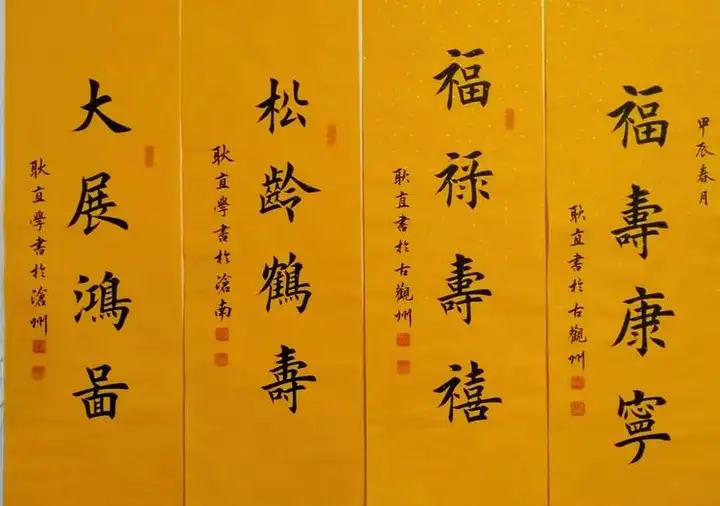 甲辰春月
福壽康寧
耿直書於古觀州
福祿壽禧
耿直書於古觀州
松齡鶴壽
耿直學書於滄南
大展鴻啚
耿直學書於滄州